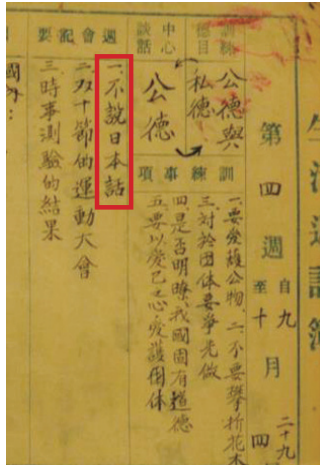 生活週記簿
第四週
自九月二十九
至十月四
訓練德目
公德與
私德
中心談話
公德
訓練事項
一要愛護公物、二不要攀折花木
三對於団体要爭先做
四是否明瞭我國固有道德
五要以愛己之心愛護団体
週會記要
一不說日本話
二双十節的運動大會
三時事測驗的結果